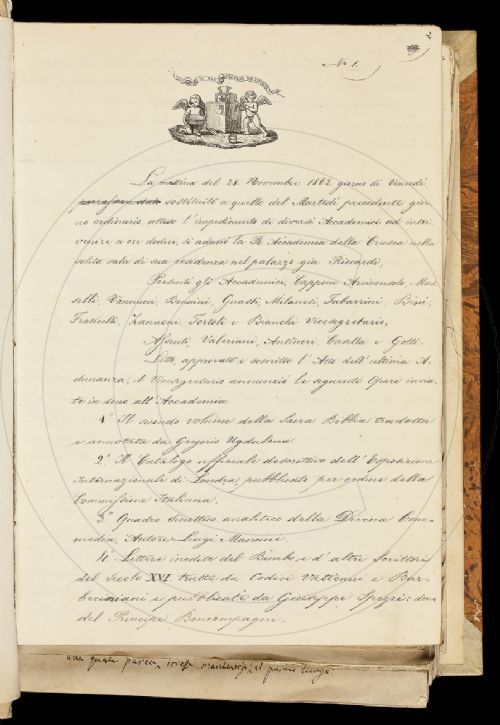 2
N.º 1.
IL PIÙ BEL FIOR NE COGLIE
La mattina del 28 Novembre 1862 giorno di Venerdì
sostituito a quello del Martedì precedente gior-
no ordinario, atteso l'impedimento di diversi Accademici ad inter-
venire a ore dodici, si adunò la R. Accademia della Crusca nella
solita sala di sua residenza nel palazzo già Riccardi,
Presenti gli Accademici Capponi Arciconsolo, Mas-
selli, Vannucci, Bencini, Guasti, Milanesi, Tabarrini, Bini,
Fraticelli, Zannoni, Tortoli e Bianchi Vicesegretario,
Assenti, Valeriani, Antinori, Casella e Gotti.
Letto, approvato e soscritto l'Atto dell'ultima A-
dunanza, il Vicesegretario annunziò le seguenti Opere invia-
te in dono all'Accademia
1.º Il secondo volume della Sacra Bibbia tradotta
e annotata da Gregorio Ugdulena
2.º Il Catalogo ufficiale descrittivo dell'Esposizione
Internazionale di Londra, pubblicato per ordine della
Commissione Italiana.
3.º Quadro sinottico analitico della Divina Com-
media, Autore Luigi Mancini.
4.º Lettere inedite del Bembo e d'altri Scrittori
del Secolo XVI tratte da Codici Vaticani e Bar-
beriniani e pubblicate da Giuseppe Spezzi: dono
del Principe Boncompagni.